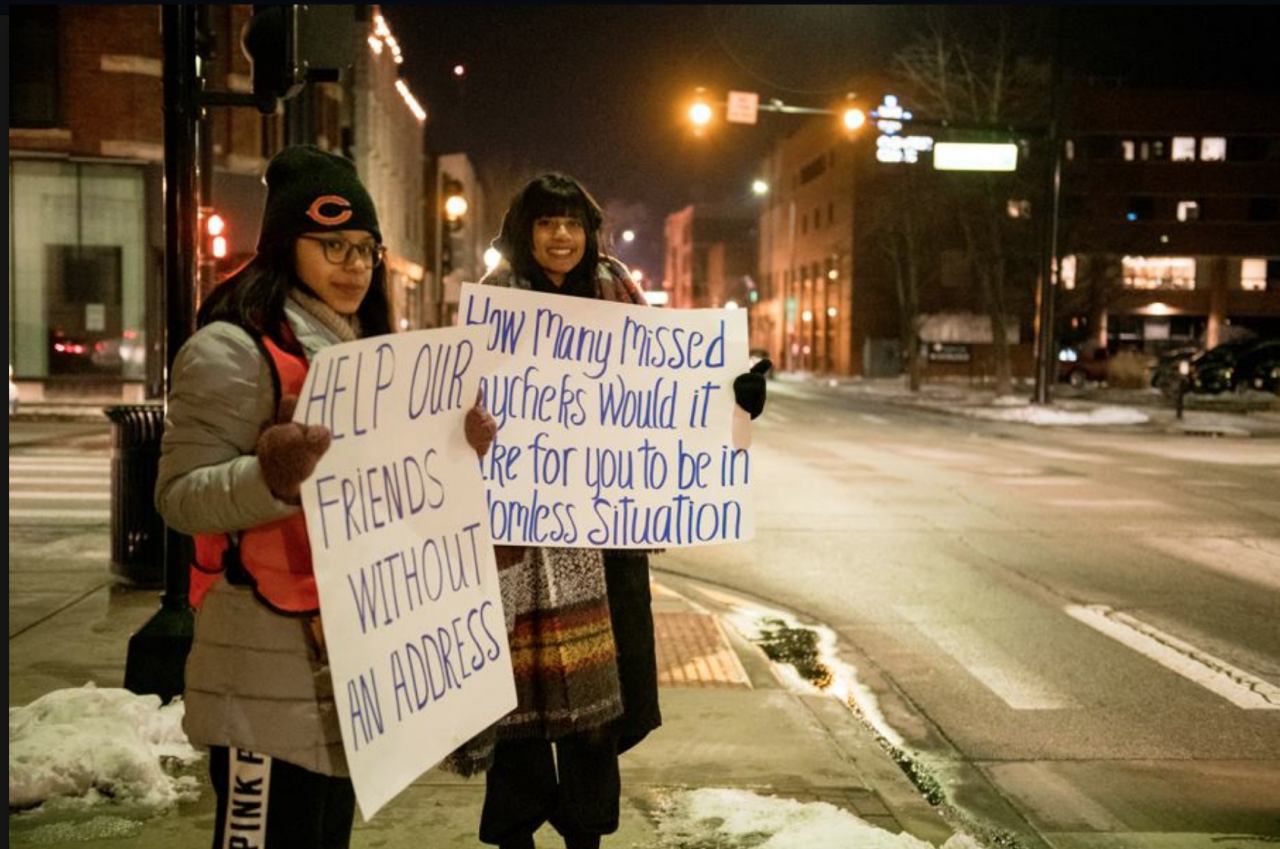 HELP OUR
FRIENDS
WITHOUT
AN ADDRESS
How many missed
aychecks would it
ke for you to be in
omless situation
PINK
C